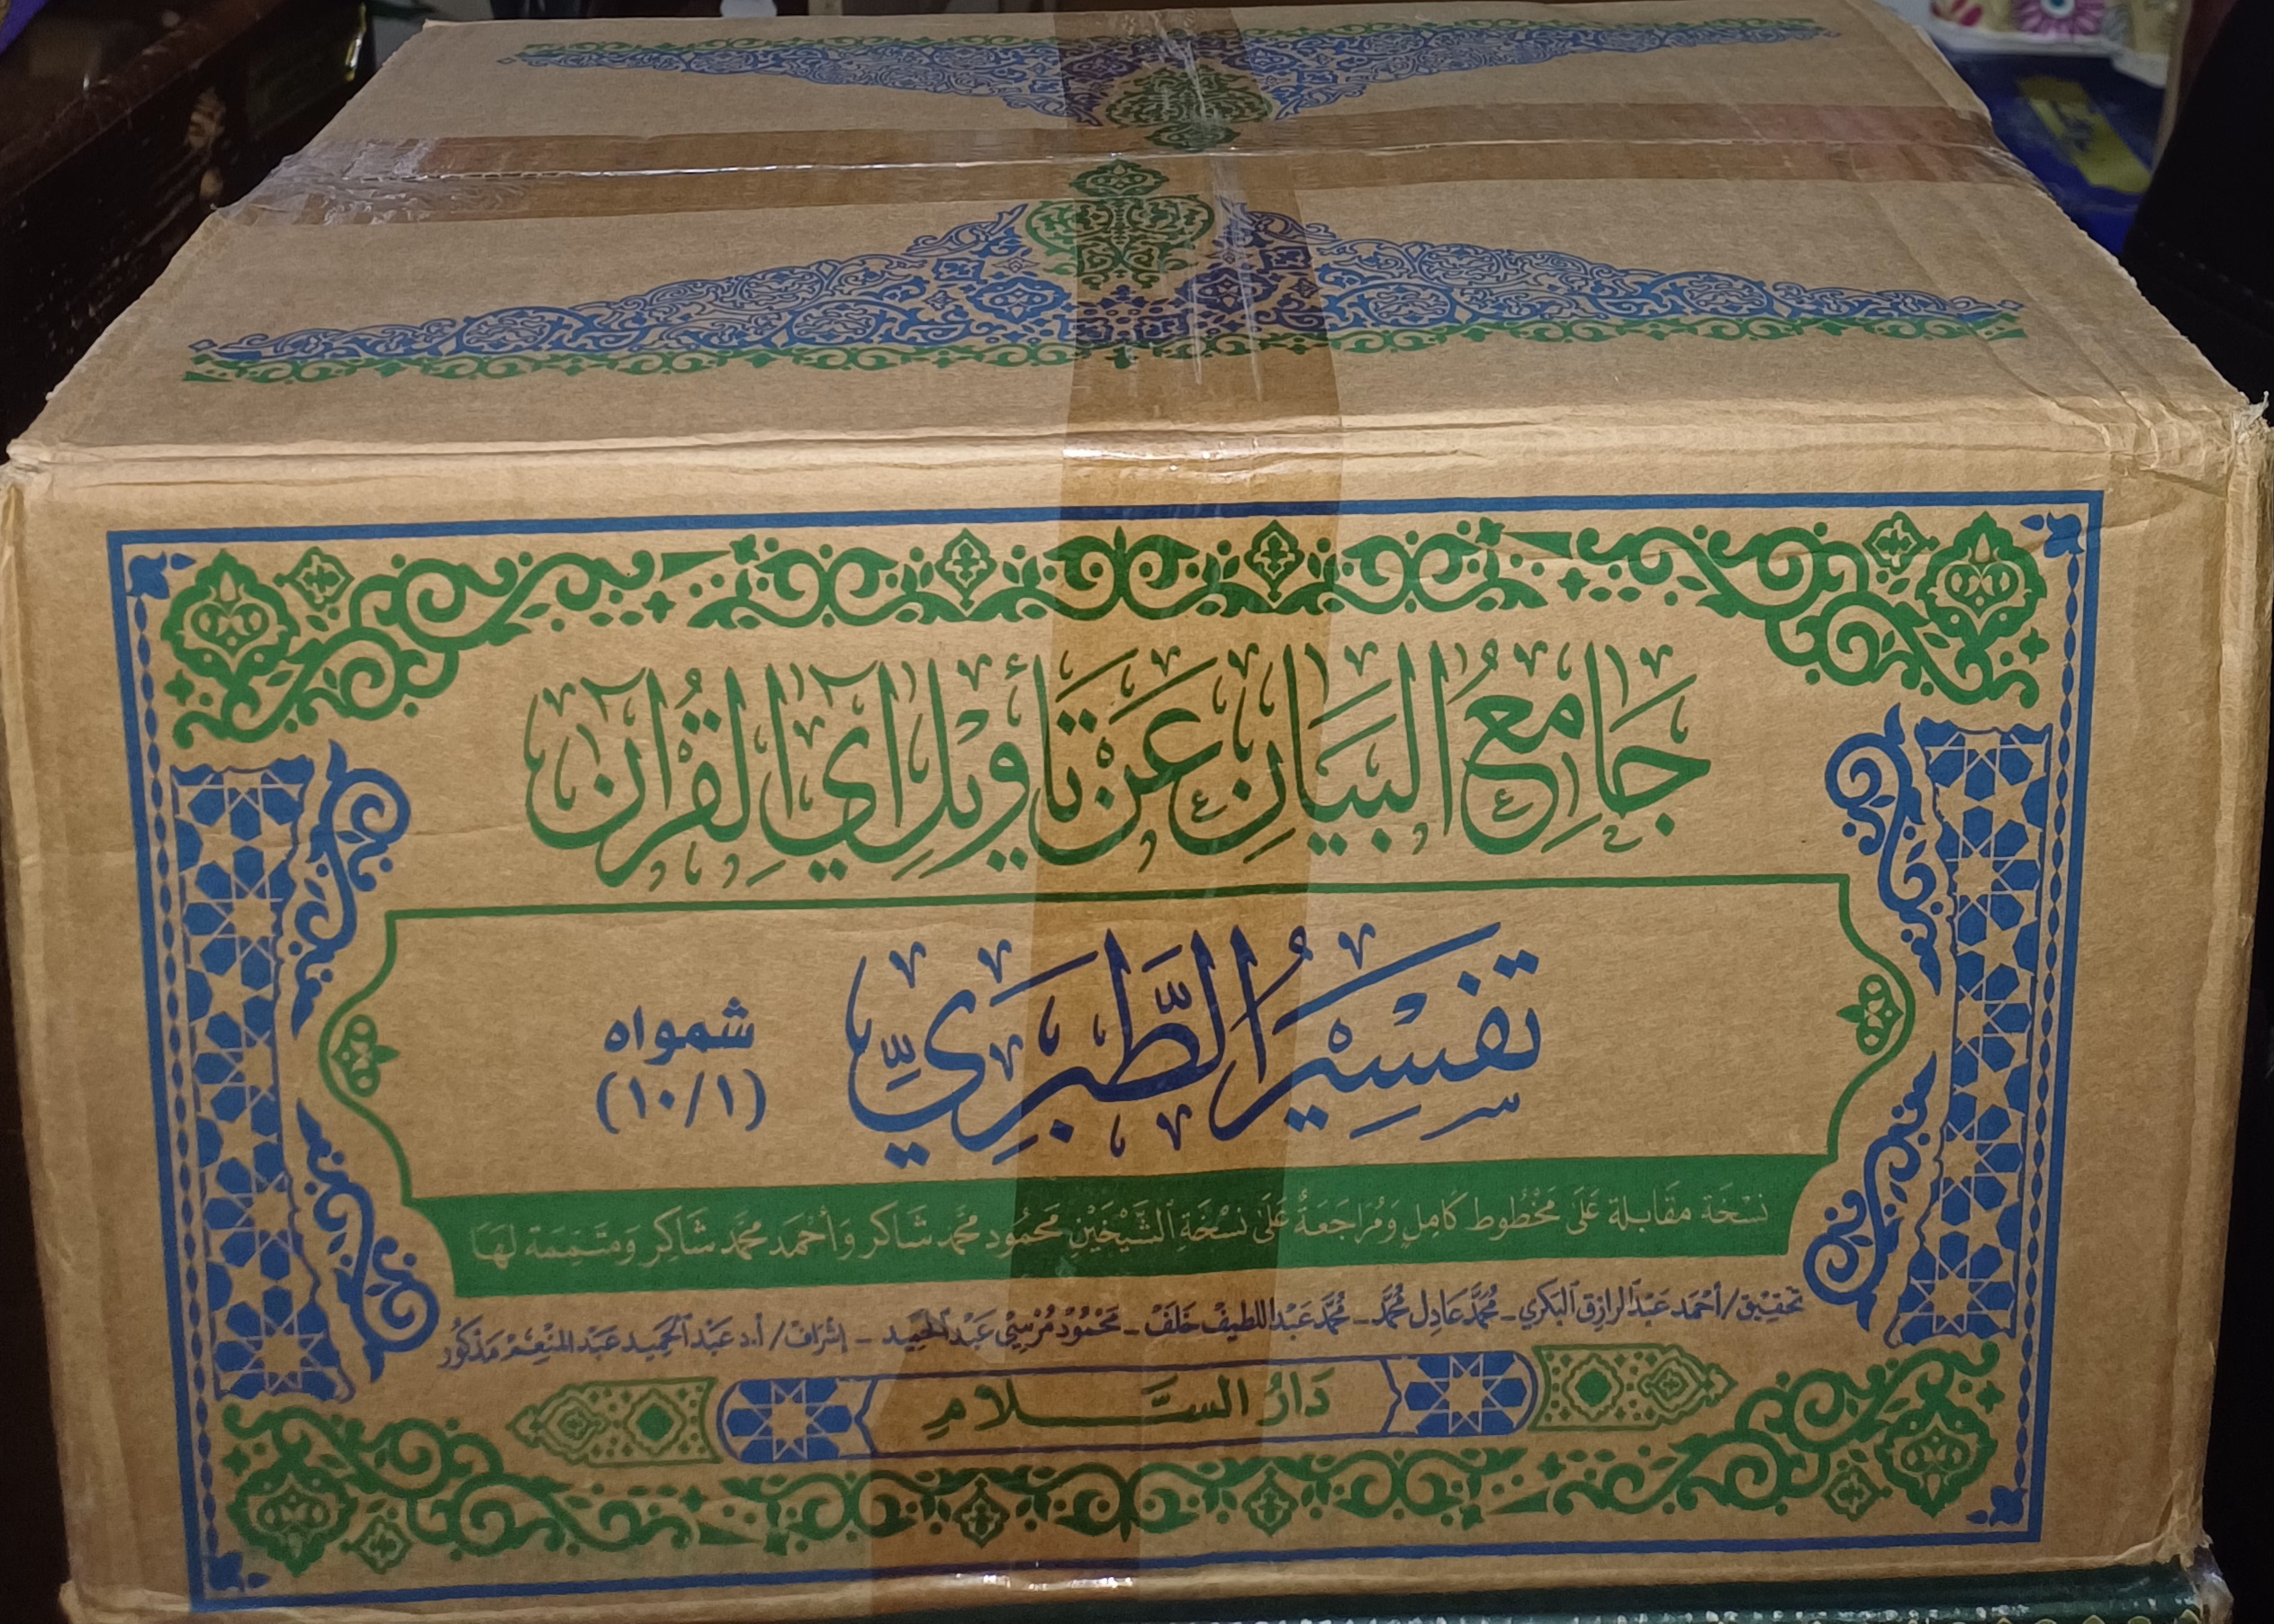 جَامِعُ البَيَانِ عَنْ تَأْوِيْلِ آيِ القُرْآن
تَفْسِيْرُ الطَّبَرِيِّ
شمواه
(١٠/١)
نسْخَة مقَابلة عَلَى مَخْطُوط كَامِلٍ وَمُرَاجَعَةٌ عَلَىٰ نسْخَةِ الشَّيْخَيْنِ مَحمُود محَّمد شَاكر وَأحْمَد محَّمد شَاكِر وَمتَممَة لهَا
تحقِيْق/أحْمَد عَبْدالرازِق البَكري - مُحمَّد عَادِل مُحمَّد - مُحمَّد عَبْداللطيفْ خَلَفْ - مَحْمُوْد مُرْسِيْ عَبْدالحَمِيْد - إشرَافْ/ أ.د عَبْد الحَمِيد عَبْد المنْعِمْ مَدْكُوْر
دَارُ السَّلَامِ